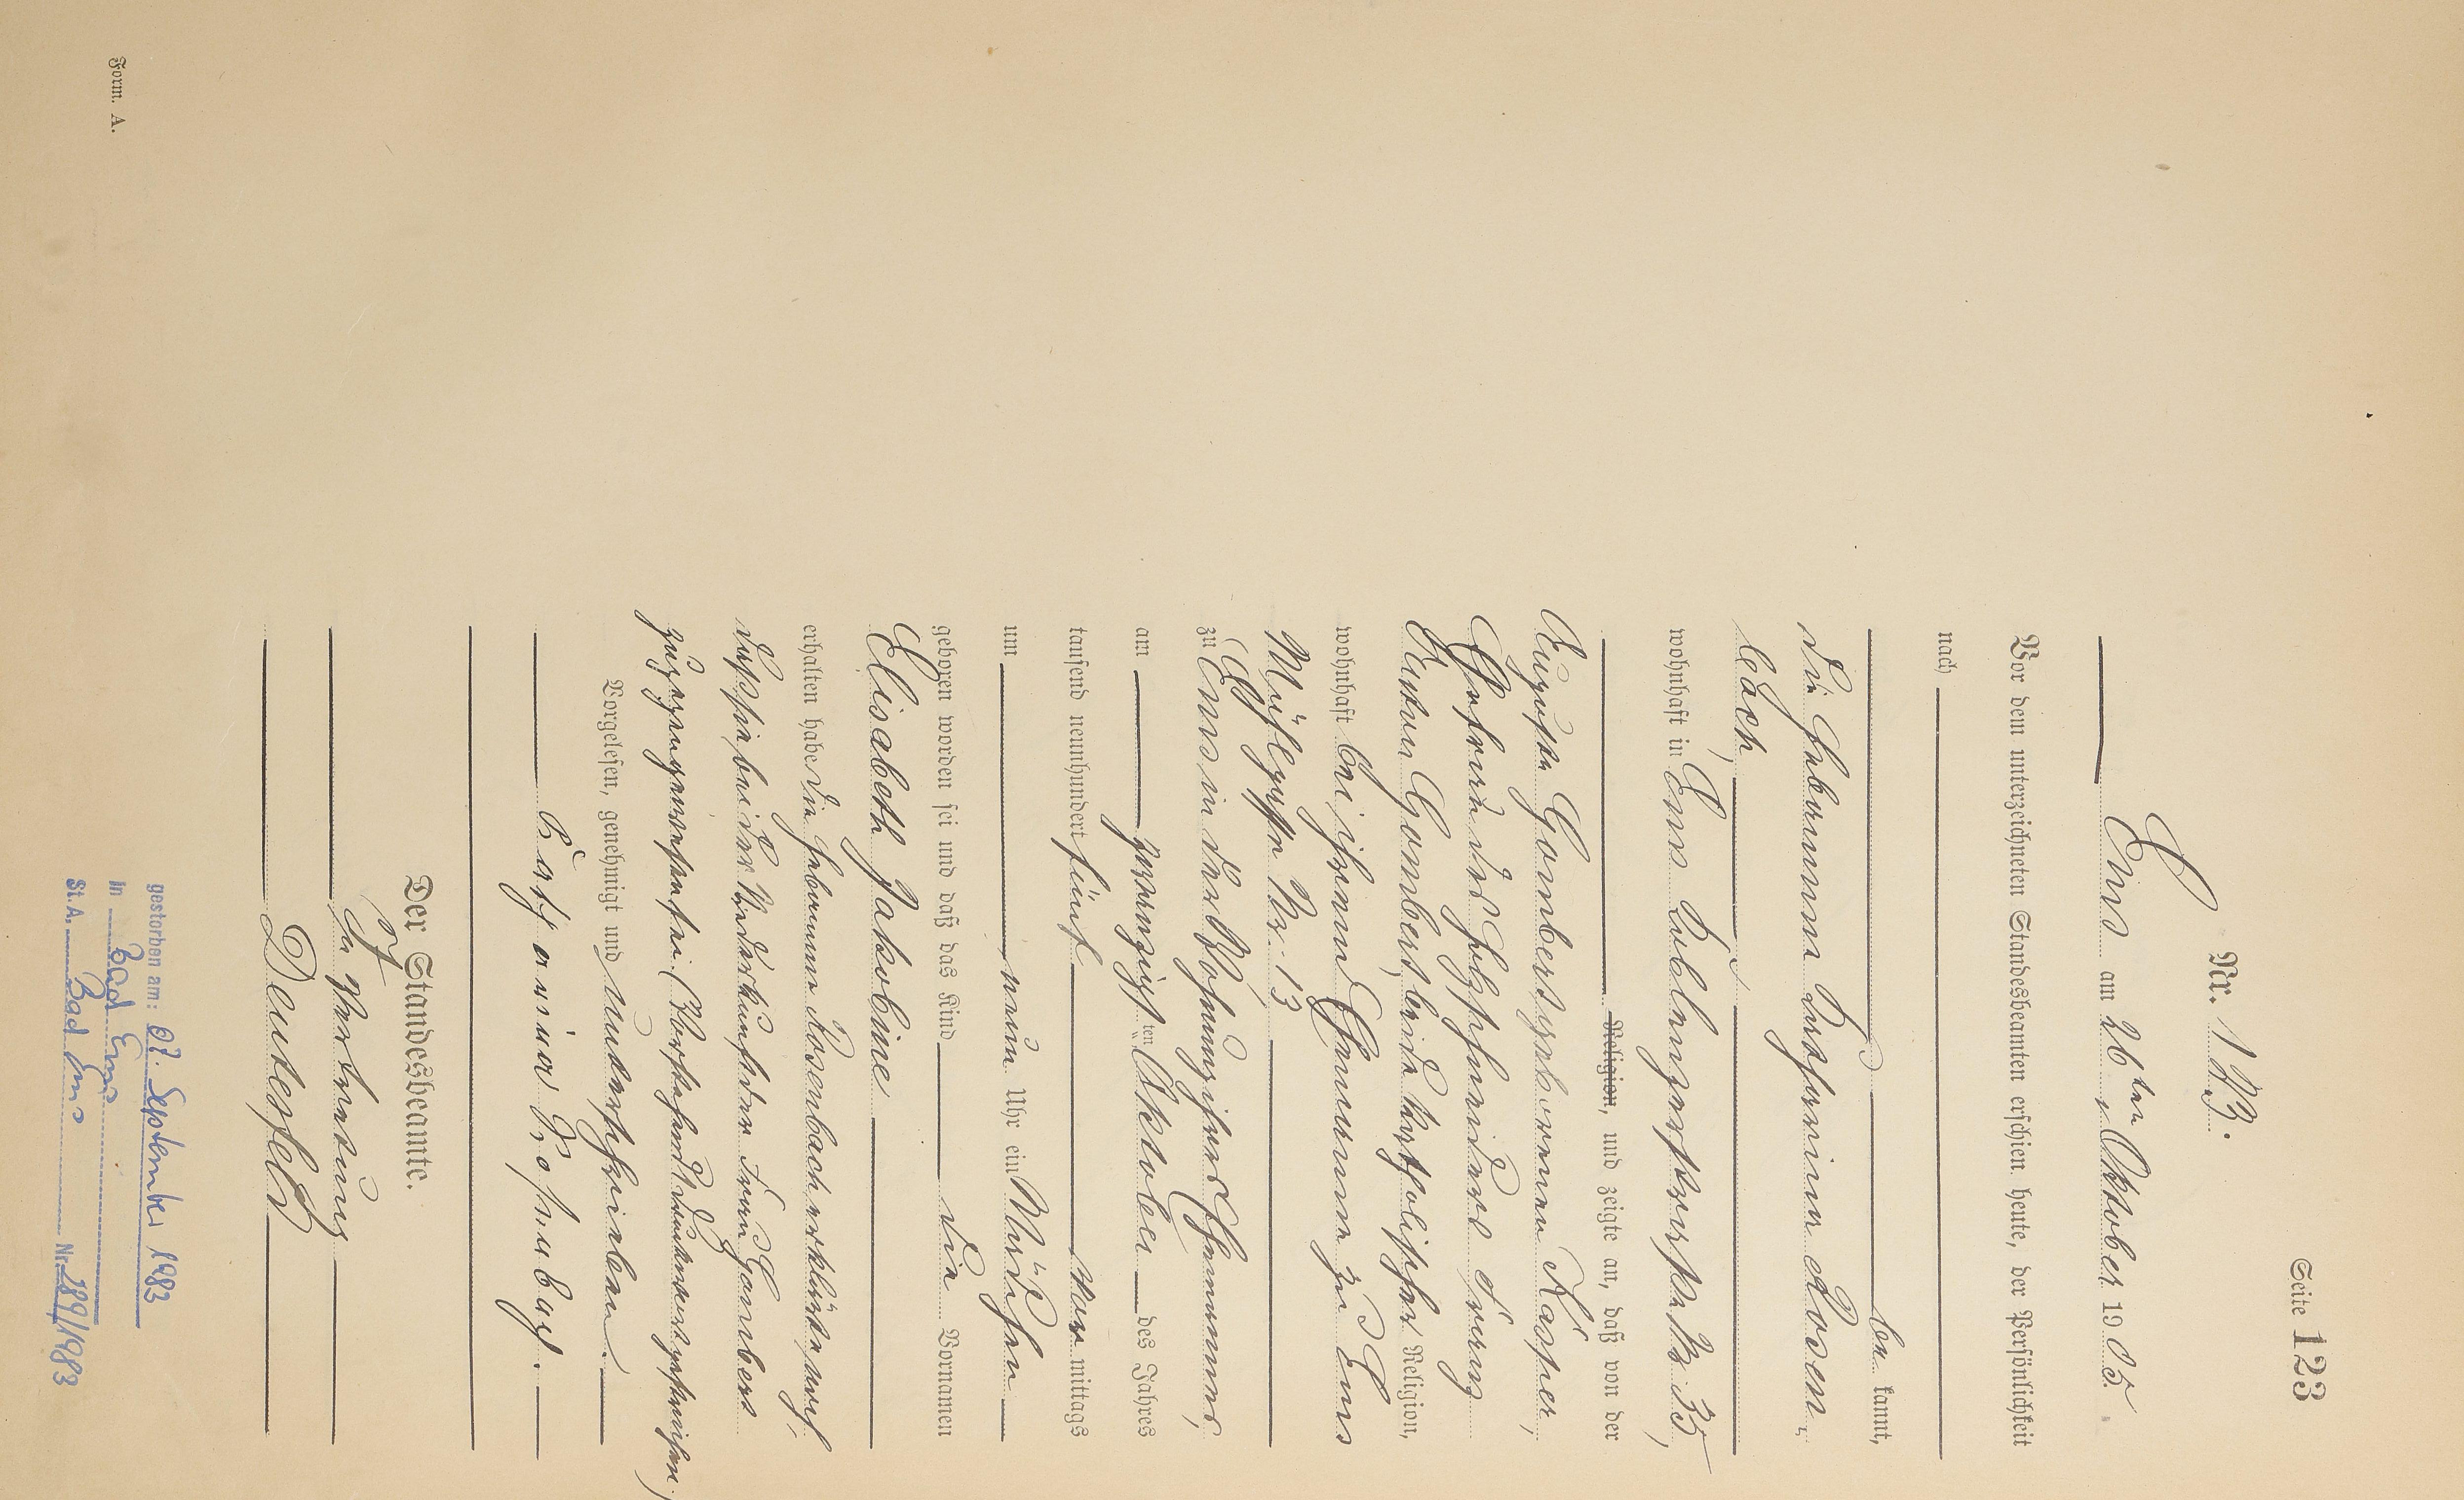 Seite 123
Nr. 123.
Ems am 26ten Oktober 1905.
Vor dem unterzeichneten Standesbeamten erschien heute, der Persönlichkeit
nach
be kannt,
die Hebamme Katharina Rosen-
bach,
wohnhaft in Ems Koblenzerstraße Nr 35,
Religion, und zeigte an, daß von der
Auguste Gombert geborenen Kasper,
Ehefrau des Holzschneiders Franz
Anton Gombert, beide katholischer Religion,
wohnhaft bei ihrem Ehemann zu Ems
Mühlgasse Nr. 13
zu Ems in der Wohnung ihres Ehemannes,
am zwanzigsten Oktober des Jahres
tausend neunhundert fünf Vor mittags
um neun Uhr ein Mädchen
geboren worden sei und daß das Kind die Vornamen
Elisabeth Jakobine
erhalten habe. Die Hebamme Rosenbach erklärte noch,
daß sie bei der Niederkunft der Frau Gombert
zugegen gewesen sei. (Vorstehend Druckwort gestrichen)
Vorgelesen, genehmigt und unterschrieben.
Katharina Rosenbach.
Der Standesbeamte.
In Vertretung
Deutesfeld
gestorben am: 07. September 1983
in Bad Ems
St. A. Bad Ems Nr. 189/1983
Form. A.